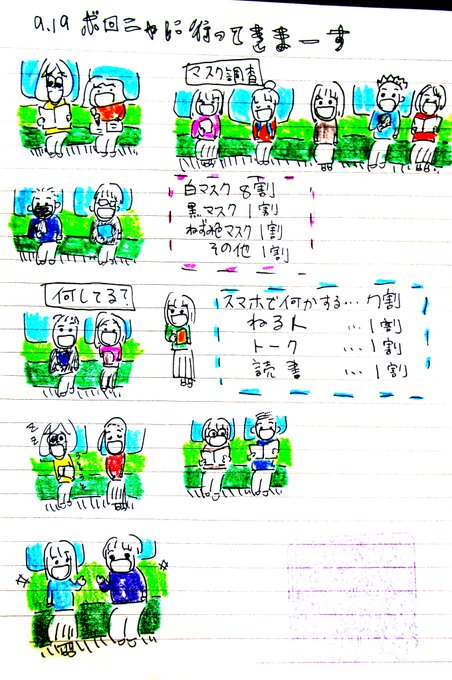 9.19 ボロニャに行ってきまーす
マスク調査
白マスク 8割
黒マスク 1割
ねずみ色マスク 1割
その他 1割
何してる?
スマホで何かする…7割
ねる人 …1割
トーク …1割
読書 …1割
zzz